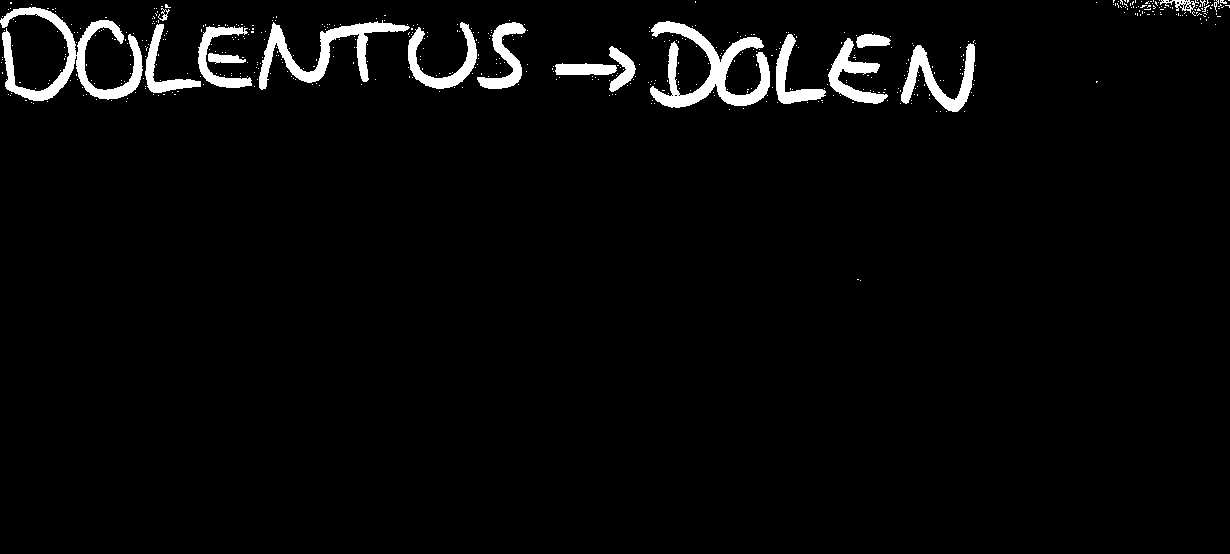 DOLENTUS → DOLEN